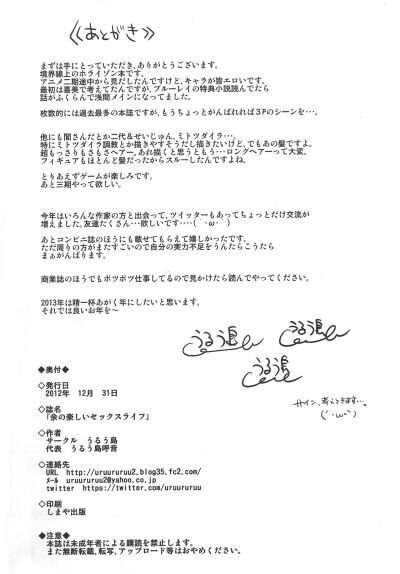 ≪あとがき≫
まずは手にとっていただき、ありがとうございます。
境界線上のホライゾン本です。
アニメ二期途中から見だしたんですけど、キャラが皆エロいです。
最初は喜美で考えてたんですが、ブルーレイの特典小説読んでたら
話がふくらんで浅間メインになってました。
枚数的には過去最多の本ですが、もうちょっとがんばれれば３Pのシーンを・・・。
他にも誾さんだとか二代&せいじゅん、ミトツダイラ・・・
特にミトツダイラ調教とか描きやすそうだし描きたいけど、でもあの髪ですよ。
超もっさりもさもさヘアー。あれ描くと思うともう・・・ロングヘアーって大変。
フィギュアもほとんど髪だったからスルーしたんですよね。
とりあえずゲームが楽しみです。
あと三期やって欲しい。
今年はいろんな作家の方と出会って、ツイッターもあってちょっとだけ交流が
増えました。友達たくさん・・・欲しいです・・・・(´･ω･｀)
あとコンビニ誌のほうにも載せてもらえて嬉しかったです。
ただ周りの方がまたすごいので自分の実力不足をうんたらこうたら
まぁがんばります。
商業誌のほうでもボツボツ仕事してるので見かけたら読んでやってください。
2013年は精一杯あがく年にしたいと思います。
それでは良いお年を～
うるう島
うるう島
うるう島
サイン、考えときます…。
(´･ω･`)
◆奥付◆
◇発行日
2012年 12月 31日
◇誌名
「余の楽しいセックスライフ」
◇作者
サークル うるう島
代表 うるう島呼音
◇連絡先
URL http://uruururuu2.blog35.fc2.com/
ﾒｰﾙ uruururuu2@yahoo.co.jp
twitter https://twitter.com/uruururuu
◇印刷
しまや出版
◆注意◆
本誌は未成年者による購読を禁止します。
また無断転載、転写、アップロード等はおやめください。